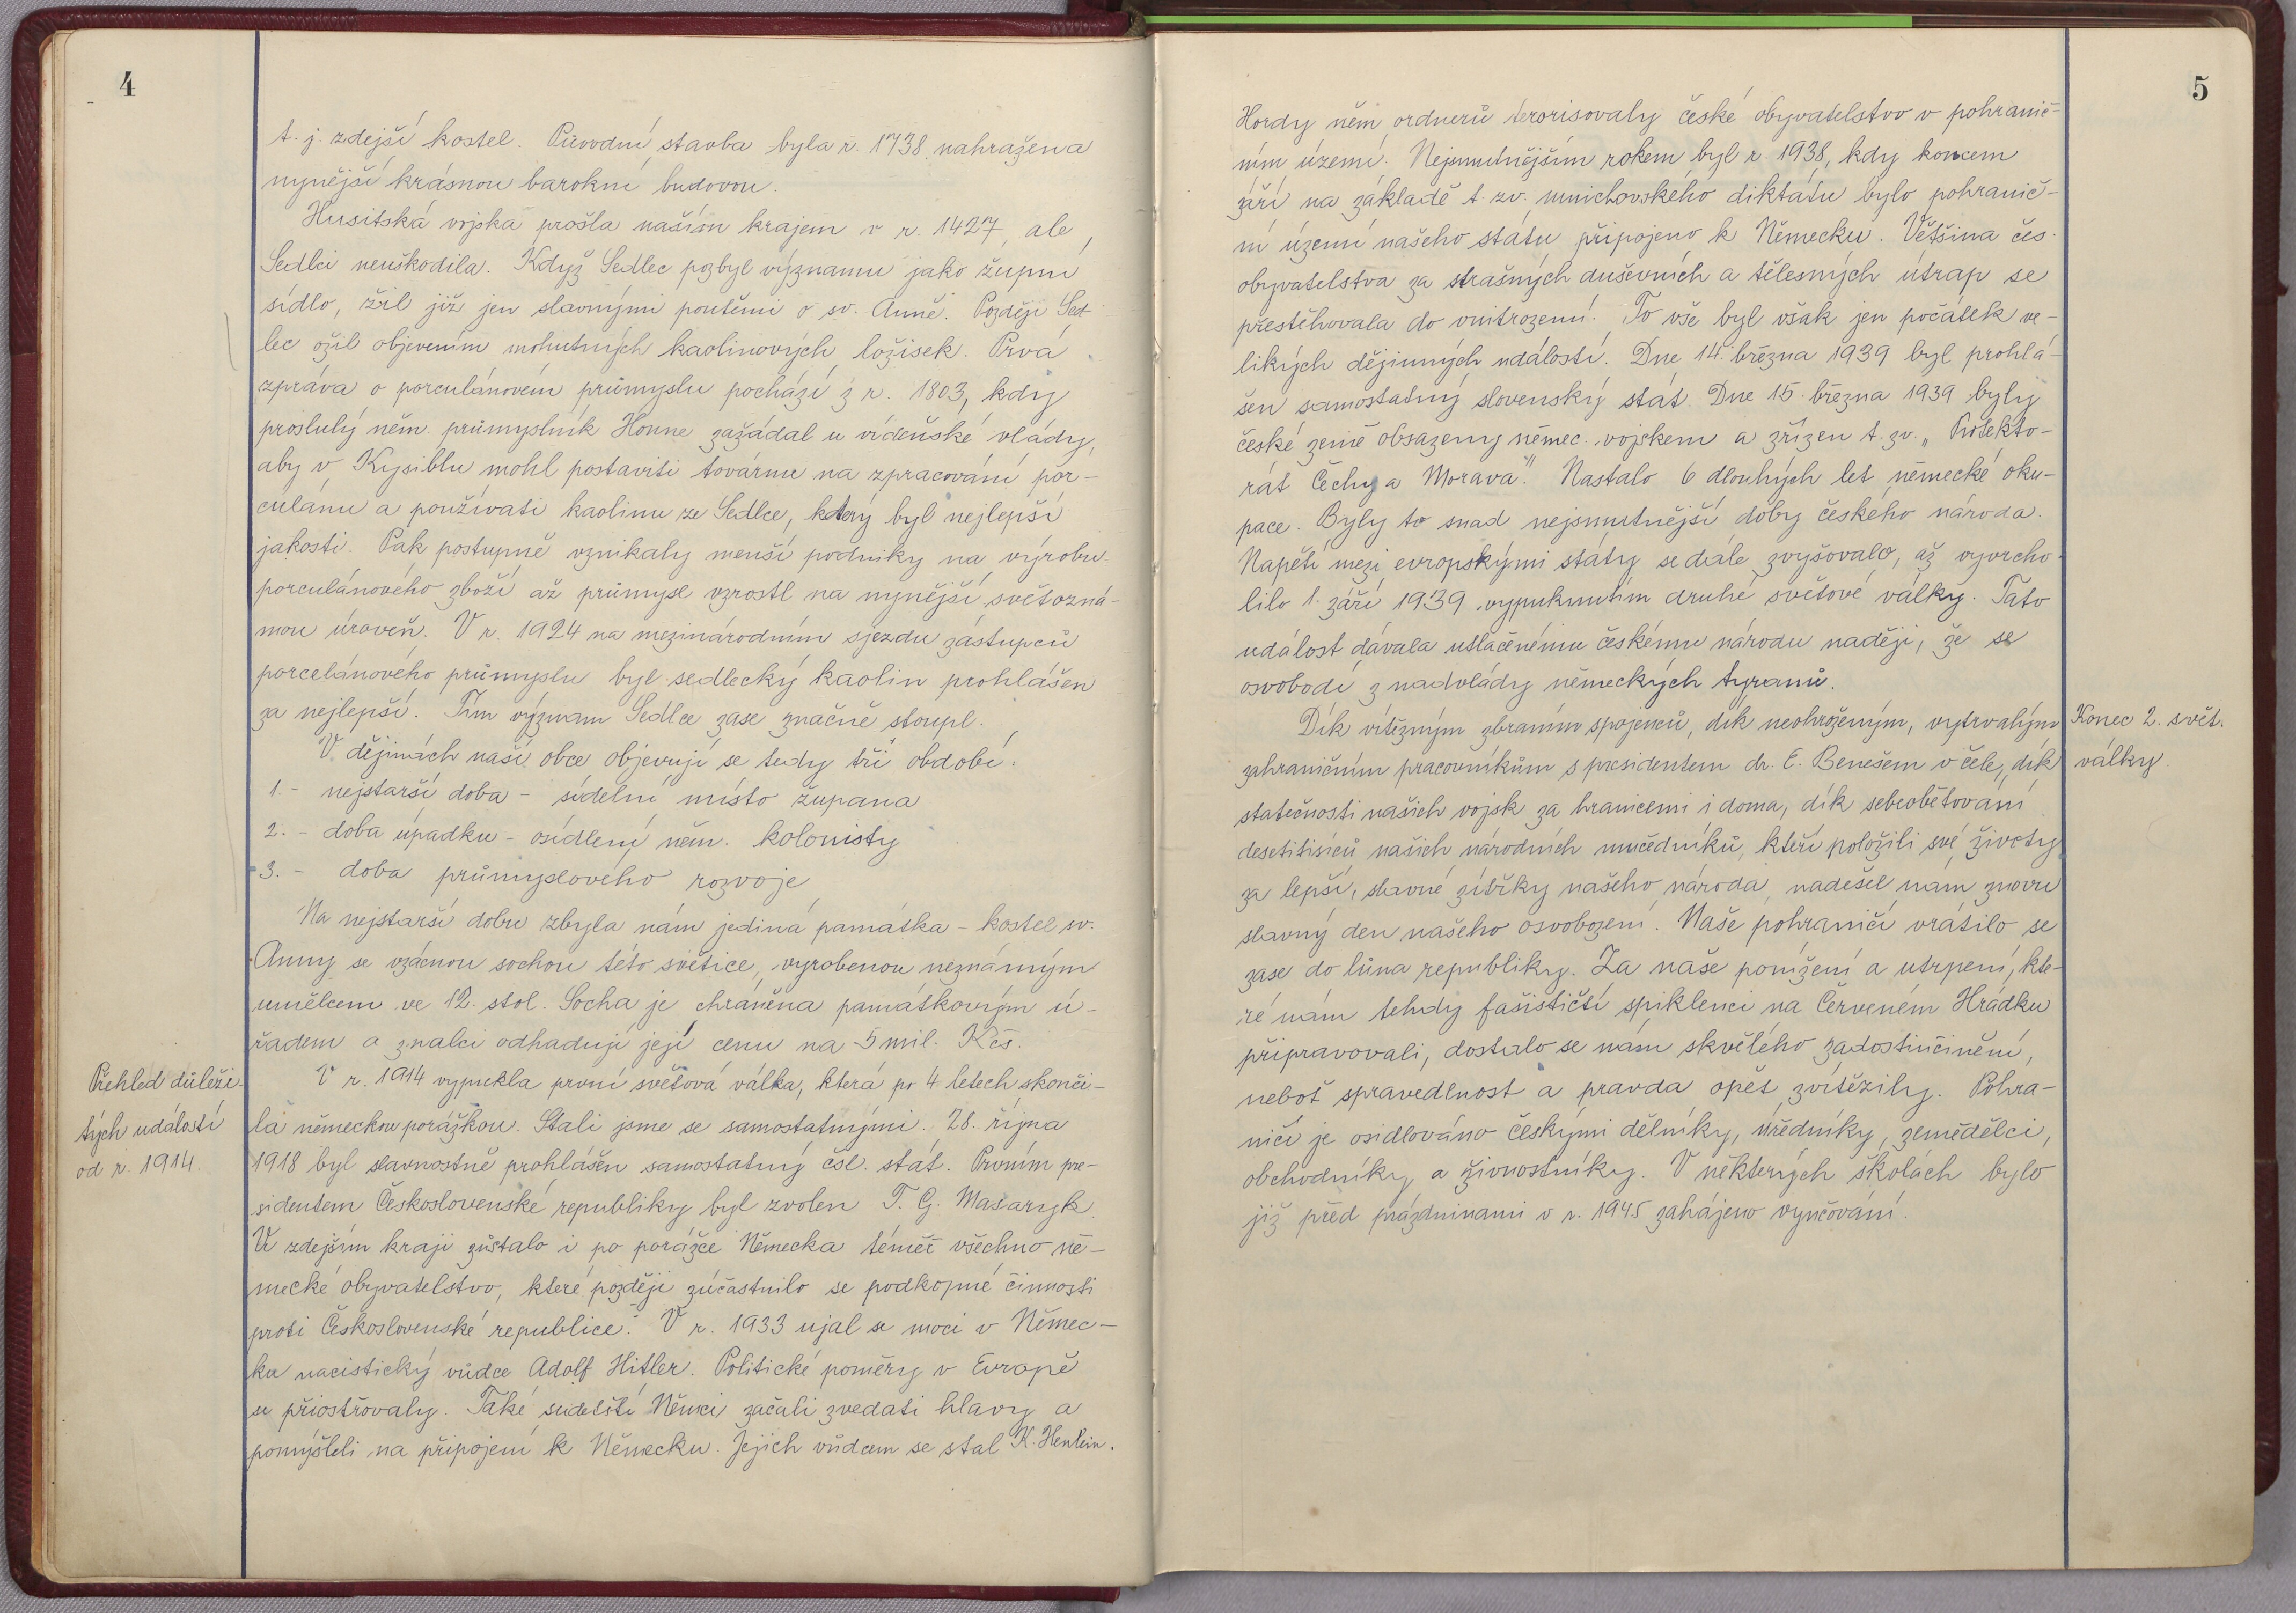 4
t. j. zdejší kostel. Původní stavba byla r. 1738 nahražena
nynější krásnou barokní budovou.
Husitská vojska prošla naším krajem v r. 1427, ale
Sedlci neuškodila. Když Sedlec pozbyl významu jako župní
sídlo, žil již jen slavnými poutěmi o sv. Anně. Později Sed-
lec ožil objevením mohutných kaolinových ložisek. Prvá
zpráva o porculánovém průmyslu pochází z r. 1803, kdy
proslulý něm. průmyslník Honne zažádal u vídeňské vlády,
aby v Kysiblu mohl postaviti továrnu na zpracování por-
culánu a používati kaolinu ze Sedlce, který byl nejlepší
jakosti. Pak postupně vznikaly menší podniky na výrobu
porculánového zboží až průmysl vzrostl na nynější světozná-
mou úroveň. V r. 1924 na mezinárodním sjezdu zástupců
porcelánového průmyslu byl sedlecký kaolin prohlášen
za nejlepší. Tím význam Sedlce zase značně stoupl.
V dějinách naší obce objevují se tedy tři období:
1. - nejstarší doba - sídelní místo župana
2. - doba úpadku - osídlení něm. kolonisty
3. - doba průmyslového rozvoje
Na nejstarší dobu zbyla nám jediná památka - kostel sv.
Anny se vzácnou sochou této světice, vyrobenou neznámým
umělcem ve 12. stol. Socha je chráněna památkovým ú-
řadem a znalci odhadují její cenu na 5 mil. Kčs.
Přehled důleži-
tých událostí
od r. 1914.
V r. 1914 vypukla první světová válka, která po 4 letech skonči-
la německou porážkou. Stali jsme se samostatnými. 28. října
1918 byl slavnostně prohlášen samostatný čsl. stát. Prvním pre-
sidentem Československé republiky byl zvolen T. G. Masaryk.
V zdejším kraji zůstalo i po porážce Německa téměř všechno ně-
mecké obyvatelstvo, které později zúčastnilo se podkopné činnosti
proti Československé republice. V r. 1933 ujal se moci v Němec-
ku nacistický vůdce Adolf Hitler. Politické poměry v Evropě
se přiostřovaly. Také sudetští Němci začali zvedati hlavy a
pomýšleli na připojení k Německu. Jejich vůdcem se stal K. Henlein.
5
Hordy něm ordnerů terorisovaly české obyvatelstvo v pohranič-
ním území. Nejsmutnějším rokem byl r. 1938, kdy koncem
září na základě t. zv. mnichovského diktátu bylo pohranič-
ní území našeho státu připojeno k Německu. Většina čes.
obyvatelstva za strašných duševních a tělesných útrap se
přestěhovala do vnitrozemí. To vše byl však jen počátek ve-
likých dějinných událostí. Dne 14. března 1939 byl prohlá-
šen samostatný slovenský stát. Dne 15. března 1939 byly
české země obsazeny němec. vojskem a zřízen t. zv. „Protekto-
rát Čechy a Morava". Nastalo 6 dlouhých let německé oku-
pace. Byly to snad nejsmutnější doby českého národa.
Napětí mezi evropskými státy se dále zvyšovalo, až vyvrcho-
lilo 1. září 1939 vypuknutím druhé světové války. Tato
událost dávala utlačenému českému národu naději, že se
osvobodí z nadvlády německých tyranů.
Konec 2. svět.
války.
Dík vítězným zbraním spojenců, dík neohroženým, vytrvalým
zahraničním pracovníkům s presidentem dr. E. Benešem v čele, dík
statečnosti našich vojsk za hranicemi i doma, dík sebeobětování
desetitisíců našich národních mučedníků, kteří položili své životy
za lepší, slavné zítřky našeho národa, nadešel nám znovu
slavný den našeho osvobození. Naše pohraničí vrátilo se
zase do lůna republiky. Za naše ponížení a utrpení, kte-
ré nám tehdy fašističtí spiklenci na Červeném Hrádku
připravovali, dostalo se nám skvělého zadostiučinění,
neboť spravedlnost a pravda opět zvítězily. Pohra-
ničí je osidlováno českými dělníky, úředníky, zemědělci,
obchodníky a živnostníky. V některých školách bylo
již před prázdninami v r. 1945 zahájeno vyučování.